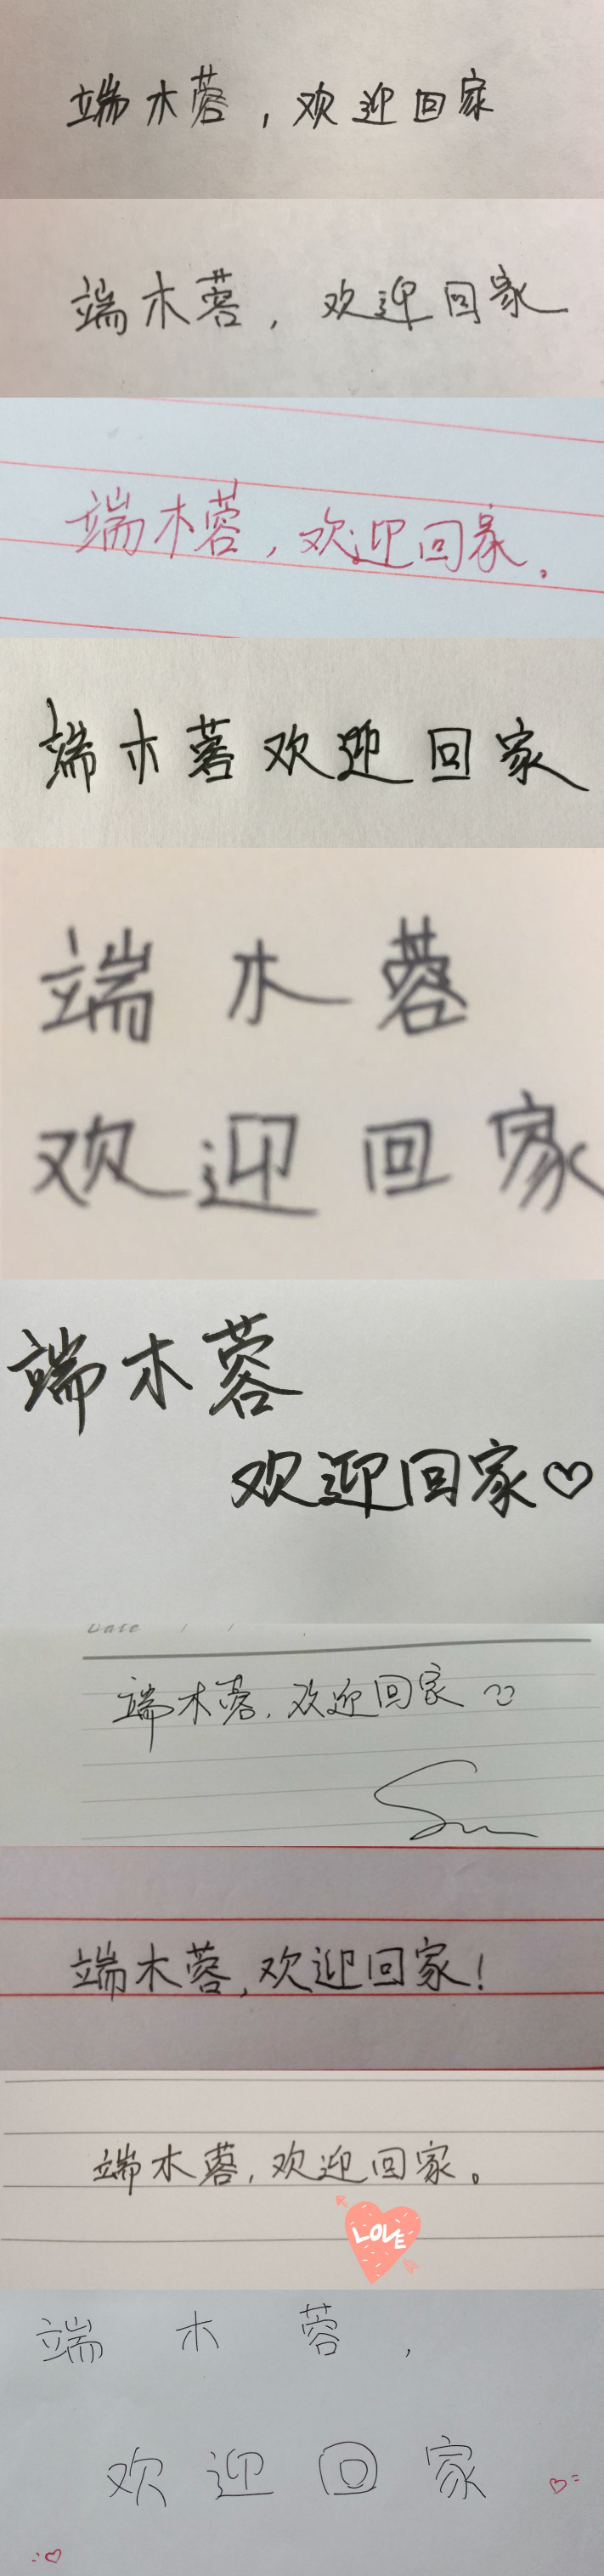 端木蓉，欢迎回家
端木蓉，欢迎回家
端木蓉，欢迎回家。
端木蓉欢迎回家
端木蓉
欢迎回家
端木蓉
欢迎回家♡
Date / /
端木蓉，欢迎回家
端木蓉，欢迎回家！
端木蓉，欢迎回家。
LOVE
端木蓉，
欢迎回家